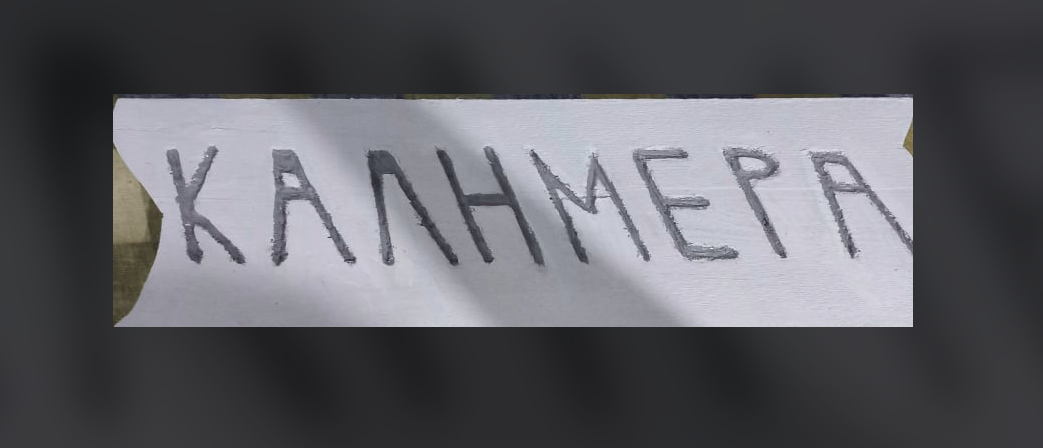 ΚΑΛΗΜΕΡΑ